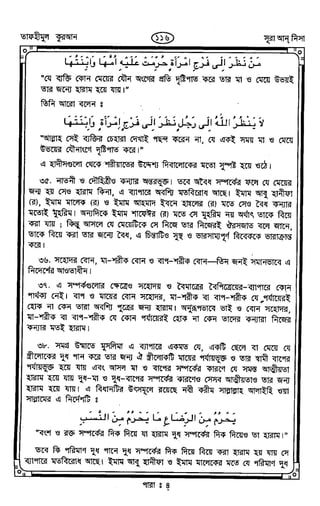 তাফহীমুল কুরআন
১১৬
সূরা আন্ নিসা
مَنْ نَظَرَ اِلٰى فَرْجِ امْرَأَةٍ حَرُمَتْ عَلَيْهِ اُمُّهَا وَابْنَتُهَا
“যে ব্যক্তি কোন মেয়ের যৌন অংগের প্রতি দৃষ্টিপাত করে তার মা ও মেয়ে উভয়ই
তার জন্যে হারাম হয়ে যায়।”
তিনি আরো বলেন :
لَا يَنْظُرُ اللّٰهُ اِلٰى رَجُلٍ نَظَرَ اِلٰى فَرْجِ اِمْرَأَةٍ وَابْنَتِهَا
“আল্লাহ সেই ব্যক্তির চেহারা দেখাই পছন্দ করেন না, যে একই সময় মা ও মেয়ে
উভয়ের যৌনাংগে দৃষ্টিপাত করে।”
এ হাদীসগুলো থেকে শরীয়াতের উদ্দেশ্য দিবালোকের মতো সুস্পষ্ট হয়ে ওঠে।
৩৫. নাতনী ও দৌহিত্রীও কন্যার অন্তরভুক্ত। তবে অবৈধ সম্পর্কের ফলে যে মেয়ের
জন্ম হয় সেও হারাম কিনা, এ ব্যাপারে অবশ্যি মতবিরোধ আছে। ইমাম আবু হানীফা
(র), ইমাম মালেক (র) ও ইমাম আহমদ ইবনে হাম্বলের (র) মতে সেও বৈধ কন্যার
মতোই মুহরিম। অন্যদিকে ইমাম শাফেঈর (র) মতে সে মুহরিম নয় অর্থাৎ তাকে বিয়ে
করা যায় ; কিন্তু আসলে যে মেয়েটিকে সে নিজে তার নিজেরই ঔরসজাত বলে জানে,
তাকে বিয়ে করা তার জন্যে বৈধ, এ চিন্তাটিও সুস্থ ও ভারসাম্যপূর্ণ বিবেককে ভারাক্রান্ত
করে।
৩৬. সহোদর বোন, মা-শরীক বোন ও বাপ-শরীক বোন—তিন জনই সমানভাবে এ
নির্দেশের আওতাধীন।
৩৭. এ সম্পর্কগুলোর ক্ষেত্রেও সহোদর ও বৈমাত্রেয় বৈপিত্রেয়ের-ব্যাপারে কোন
পার্থক্য নেই। বাপ ও মায়ের বোন সহোদর, মা-শরীক বা বাপ-শরীক যে পর্যায়েরই
হোক না কেন তারা অবশ্যি পুত্রের জন্য হারাম। অনুরূপভাবে ভাই ও বোন সহোদর,
মা-শরীক বা বাপ-শরীক যে কোন পর্যায়েরই হোক না কেন তাদের কন্যারা নিজের
কন্যার মতই হারাম।
৩৮. সমগ্র উম্মাতে মুসলিমা এ ব্যাপারে একমত যে, একটি ছেলে বা মেয়ে যে
স্ত্রীলোকের দুধ পান করে তার জন্য ঐ স্ত্রীলোকটি মায়ের পর্যায়ভুক্ত ও তার স্বামী বাপের
পর্যায়ভুক্ত হয়ে যায় এবং আসল মা ও বাপের সম্পর্কের কারণে যে সমস্ত আত্মীয়তা
হারাম হয়ে যায় দুধ-মা ও দুধ-বাপের সম্পর্কের কারণেও সেসব আত্মীয়তাও তার জন্য
হারাম হয়ে যায়। এ বিধানটির উৎসমূলে রয়েছে নবী করীম সাল্লাল্লাহু আলাইহি ওয়া
সাল্লামের এ নির্দেশটি :
يَحْرُمُ مِنَ الرَّضَاعِ مَا يَحْرُمُ مِنَ النَّسَبِ
“বংশ ও রক্ত সম্পর্কের দিক দিয়ে যা হারাম দুধ সম্পর্কের দিক দিয়েও তা হারাম।”
তবে কি পরিমাণ দুধ পানে দুধ সম্পর্কের দিক দিয়ে বিয়ে করা হারাম হয়ে যায় সে
ব্যাপারে মতবিরোধ আছে। ইমাম আবু হানীফা ও ইমাম মালেকের মতে যে পরিমাণ দুধ
পারা : ৪